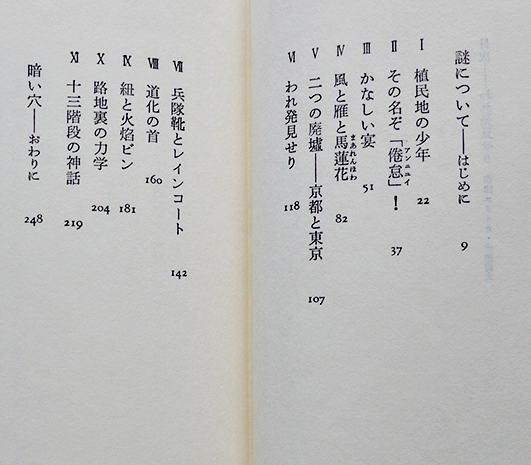 謎について――はじめに 9
Ⅰ 植民地の少年 22
Ⅱ その名ぞ「倦怠」! 37
アンニュイ
Ⅲ かなしい宴 51
Ⅳ 風と雁と馬蓮花 82
まあれんほわ
Ⅴ 二つの廃墟――京都と東京 107
Ⅵ われ発見せり 118
Ⅶ 兵隊靴とレインコート 142
Ⅷ 道化の首 160
Ⅸ 紐と火焰ビン 181
Ⅹ 路地裏の力学 204
Ⅺ 十三階段の神話 219
暗い穴――おわりに 248